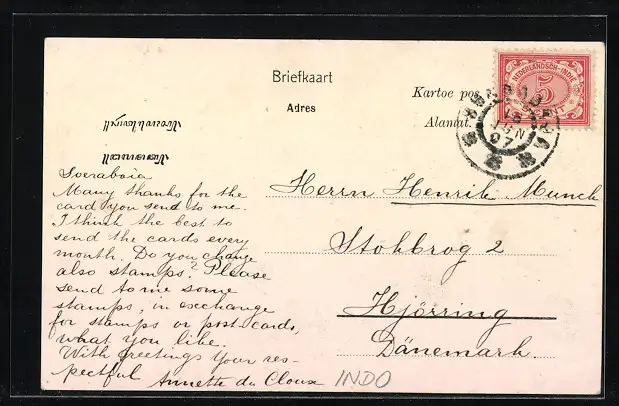 Briefkaart
Adres
Kartoe pos
Alamat.
NEDERLANDSCH-INDIË
5
SOERABAJA
JUN
07
Soerabaia
Many thanks for the
card you send to me.
I think the best to
send the cards every
month. Do you change
also stamps? Please
send to me some
stamps, in exchange
for stamps or post-cards,
what you like.
With greetings Your res-
pectful Annette du Cloux
Herrn Henrik Munch
Stokbrog 2
Hjörring
Dänemark.
INDO